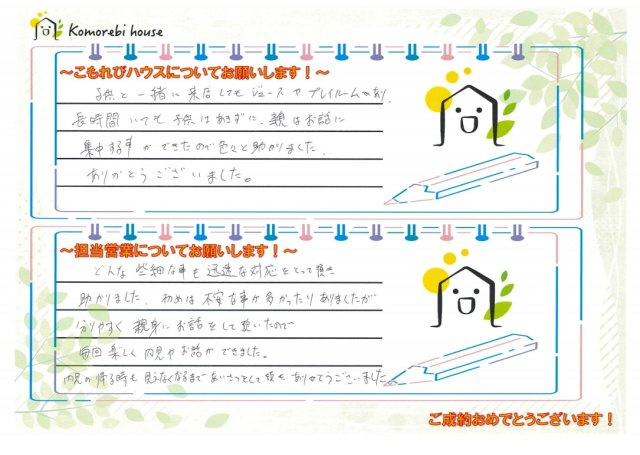 Komorebi house
～こもれびハウスについてお願いします！～
子供と一緒に来店してもジュースやプレイルームがあり、
長時間いても子供はあきずに、親はお話に
集中する事ができたので色々と助かりました。
ありがとうございました。
～担当営業についてお願いします！～
どんな些細な事も迅速な対応をとって頂き
助かりました。初めは不安な事が多かったりありましたが
分りやすく親身にお話をして頂いたので
毎回楽しく内見やお話ができました。
内見の帰る時も見えなくなるまであいさつをして頂きありがとうございました
ご成約おめでとうございます！